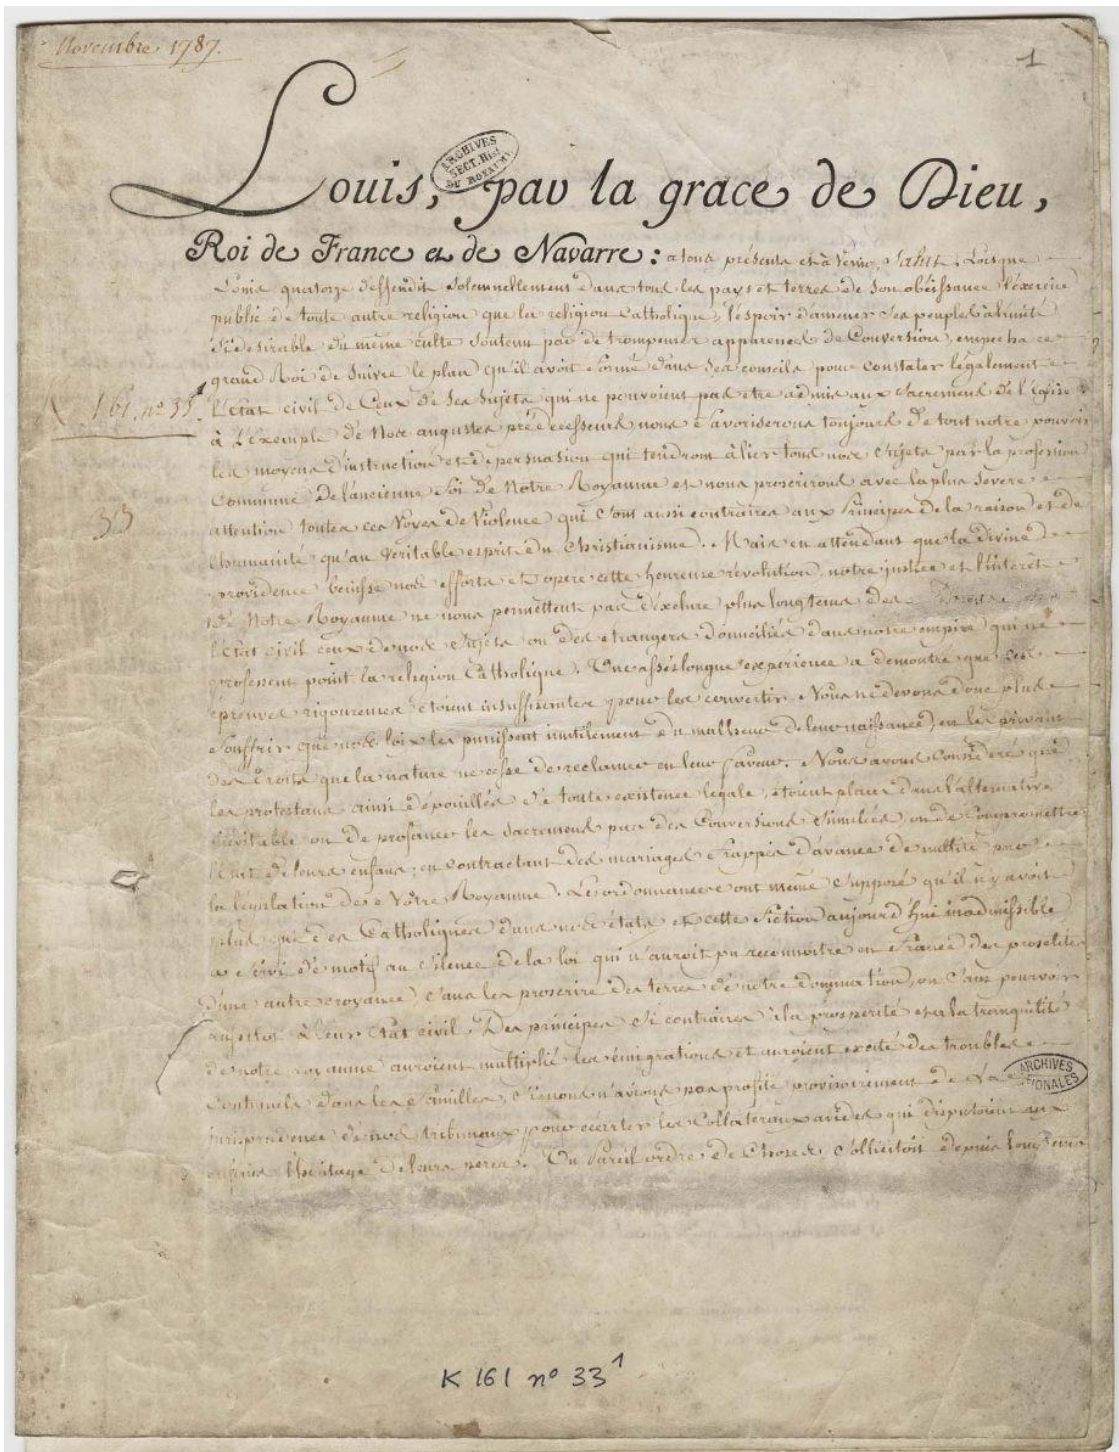 Novembre 1787.
1
ARCHIVES
SECT. HIST.
DU ROYAUME
Louis, par la grace de Dieu,
Roi de France et de Navarre : a tous présents et à venir, Salut. Lorsque
Louis quatorze deffendit solemnellement dans tous les pays et terres de son obéissance l'éxercice
public de toute autre religion que la religion Catholique, l'espoir d'amener ses peuples à l'unité
si desirable du même culte soutenu par de trompeuses apparences de Conversion, empecha ce
grand Roi de suivre le plan qu'il avoit formé dans ses conseils pour constater légalement
K 161. n° 33.1
l'Etat civil de Ceux de ses Sujets qui ne pouvoient pas etre admis aux sacremens de l'Eglise :
à l'exemple de Nos augustes prédecesseurs nous favoriserons toujours de tout notre pouvoir
les moyens d'instruction et de persuasion qui tendront à lier tous nos sujets par la profession
Commune de l'ancienne foi de Notre Royaume et nous proscrirons avec la plus severe
33
attention toutes ces Voyes de Violence qui sont aussi contraires aux Principes de la raison et de
l'humanité qu'au veritable esprit du Christianisme. Mais en attendant que la divine
providence benisse nos efforts et opere cette heureuse révolution, notre justice et l'intérêt
de Notre Royaume ne nous permettent pas d'éxclure plus longtems des
l'Etat civil ceux de nos sujets ou des etrangers domiciliés dans notre empire qui ne
professent point la religion Catholique. Une assés longue expérience a demontré que ces
épreuves rigoureuses etoient insuffisantes pour les convertir. Nous ne devons donc plus
souffrir que nos loix les punissent inutilement du malheur de leur naissance, en les privant
des Droits que la nature ne cesse de reclamer en leur faveur. Nous avons Consideré que
les protestans ainsi dépouillés de toute existence legale, etoient placés dans l'alternative
inévitable ou de profaner les sacremens par des Conversions simulées, ou de Compromettre
l'Etat de leurs enfans, en contractant des mariages frappés d'avance de nullité par
la législation de Notre Royaume. Les ordonnances ont même supposé qu'il n'y avoit
plus que des Catholiques dans nos états et cette fiction aujourd'hui inadmissible
a servi de motif au silence de la loi qui n'auroit pu reconnoître en France des proselites
d'une autre croyance, sans les proscrire des terres de notre domination, ou sans pourvoir
aussitot à leur Etat civil. Des principes si contraires à la prosperité et à la tranquilité
de notre royaume auroient multiplié les émigrations et auroient excité des troubles
ARCHIVES
NATIONALES
Continuels dans les familles, si nous n'avions pas profité provisoirement de la
jurisprudence de nos tribunaux pour écarter les Collateraux avides qui disputoient aux
enfans l'héritage de leurs peres. Un pareil ordre de Choses sollicitoit depuis longtems
K 161 n° 33 1